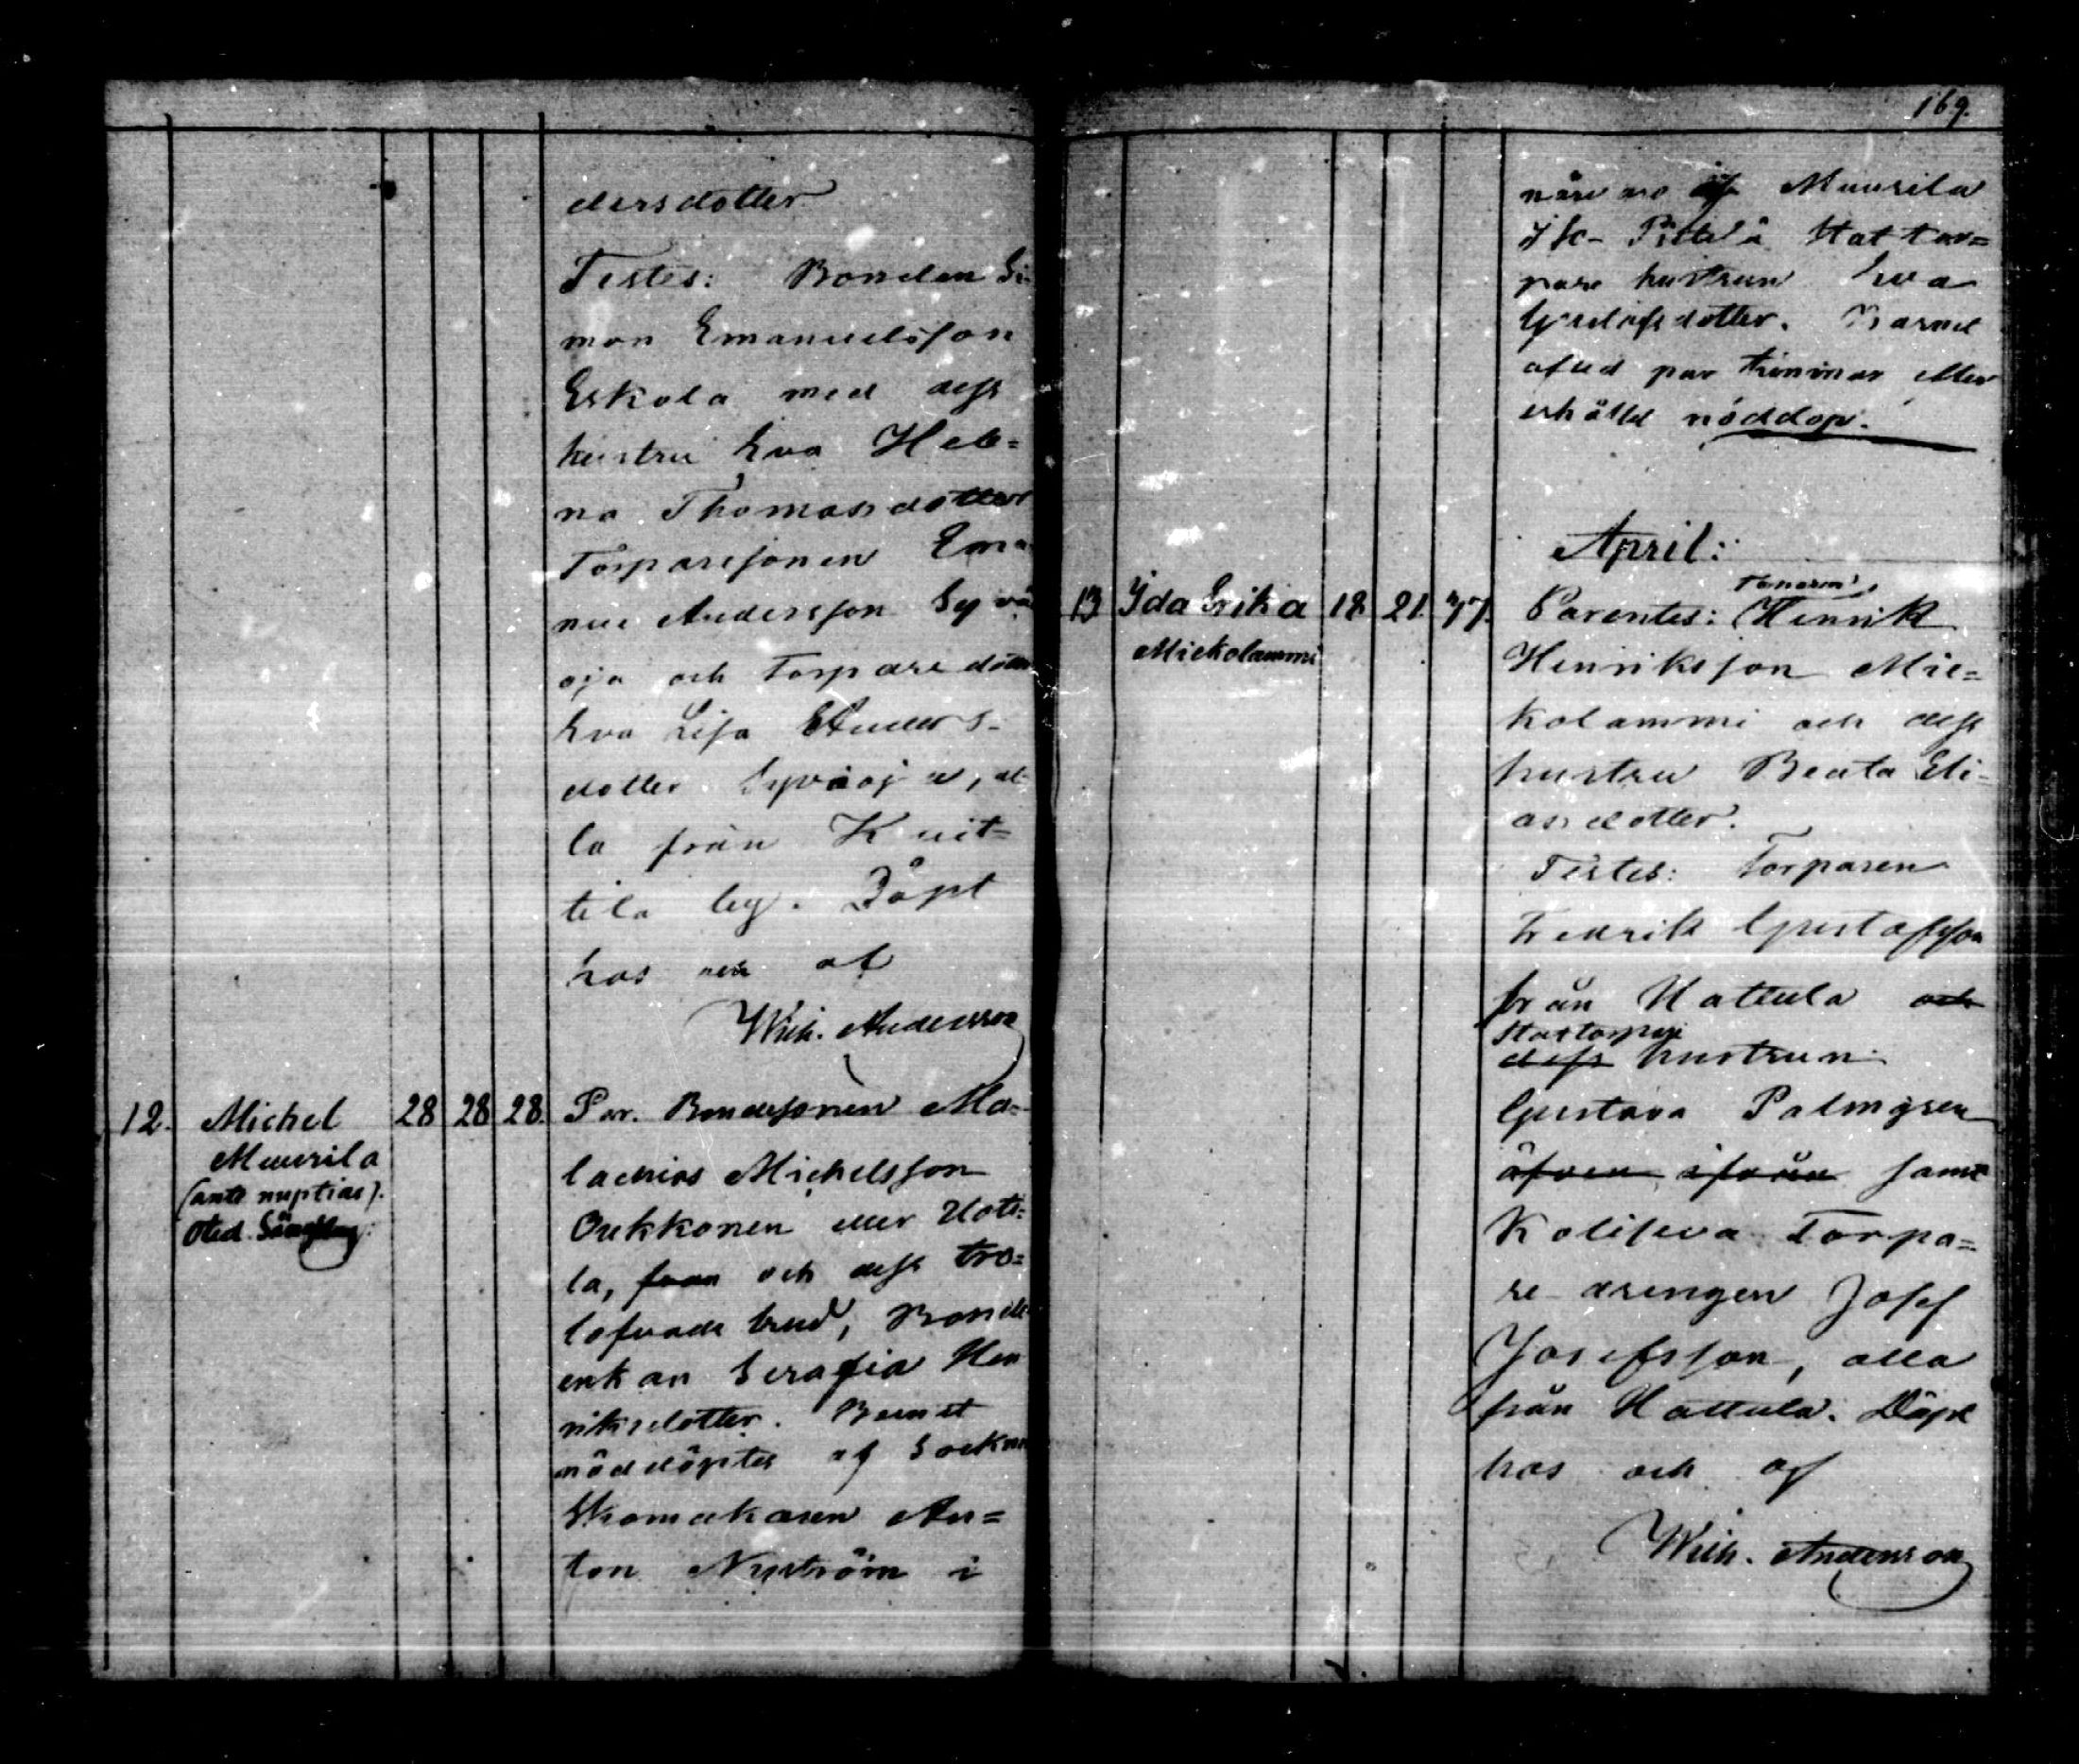 dersdotter
Testes: Bonden Si-
mon Emanuelsson
Eskola med dess
hustru Eva Hele=
na Thomasdotter
Torparesonen Ema
nuel Andersson Syvä
oja och Torparedotter
Eva Lisa Anders-
dotter Syväoja, al-
la från Kuit=
tila by. Döpt
hos och af
Wilh. Andersson
12. Michel 28 28 28. Par. Bondesonen Ma-
Muurila
(ante nuptias).
lachias Michelsson
Oukkonen eller Hoti=
la, från och dess tro=
lofvade brud, Bonde
enkan Serafia Hen
riksdotter. Barnet
nöddöptes af Sockne
Skomakaren An=
ton Nyström i
169.
närvaro af Muurila
Stattor=
pare hustrun Eva
Gustafsdotter. Barnet
afled par timmar efter
erhållet nöddop.
April:
13 Ida Erika 18 21. 77. Parentes: Henrik
Mickolammi
Henriksson Mic=
kolammi och dess
hustru Beata Eli-
asdotter.
Testes: Torparen
Fredrik Gustafsson
från Hattula och
Stattorpare
dess hustrun
Gustava Palmgren
äfven ifrån samt
Torpa=
re drengen Josef
Josefsson, alla
från Hattula. Döpt
hos och af
Wilh. Andersson